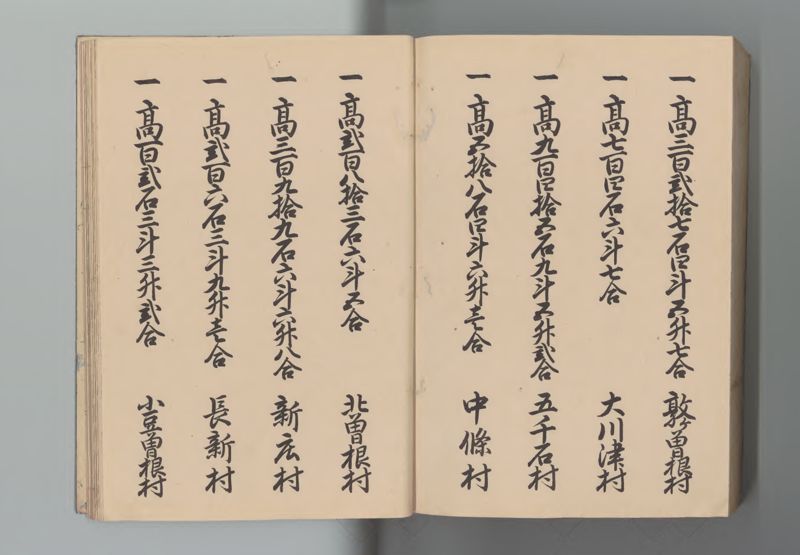 一高三百弐拾七石四斗五升七合 敦曽根村
一高七百四石六斗七合 大川津村
一高九百四拾五石九斗五升弐合 五千石村
一高五拾八石四斗六升壱合 中條村
一高弐百八拾三石六斗五合 北曽根村
一高三百九拾九石六斗六升八合 新広村
一高弐百六石三斗九升壱合 長新村
一高百弐石三斗三升弐合 小豆曽根村